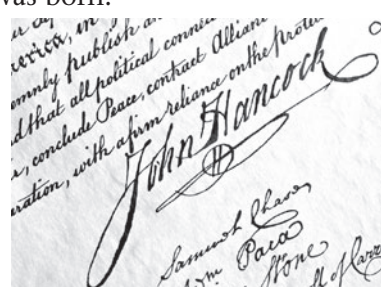 was born.
in
emnly publish a
d that all political connec
conclude Peace, contract Allian
eration, with a firm reliance on the prote
John Hancock
Samuel Chase
Paca
Stone
ll of Carr